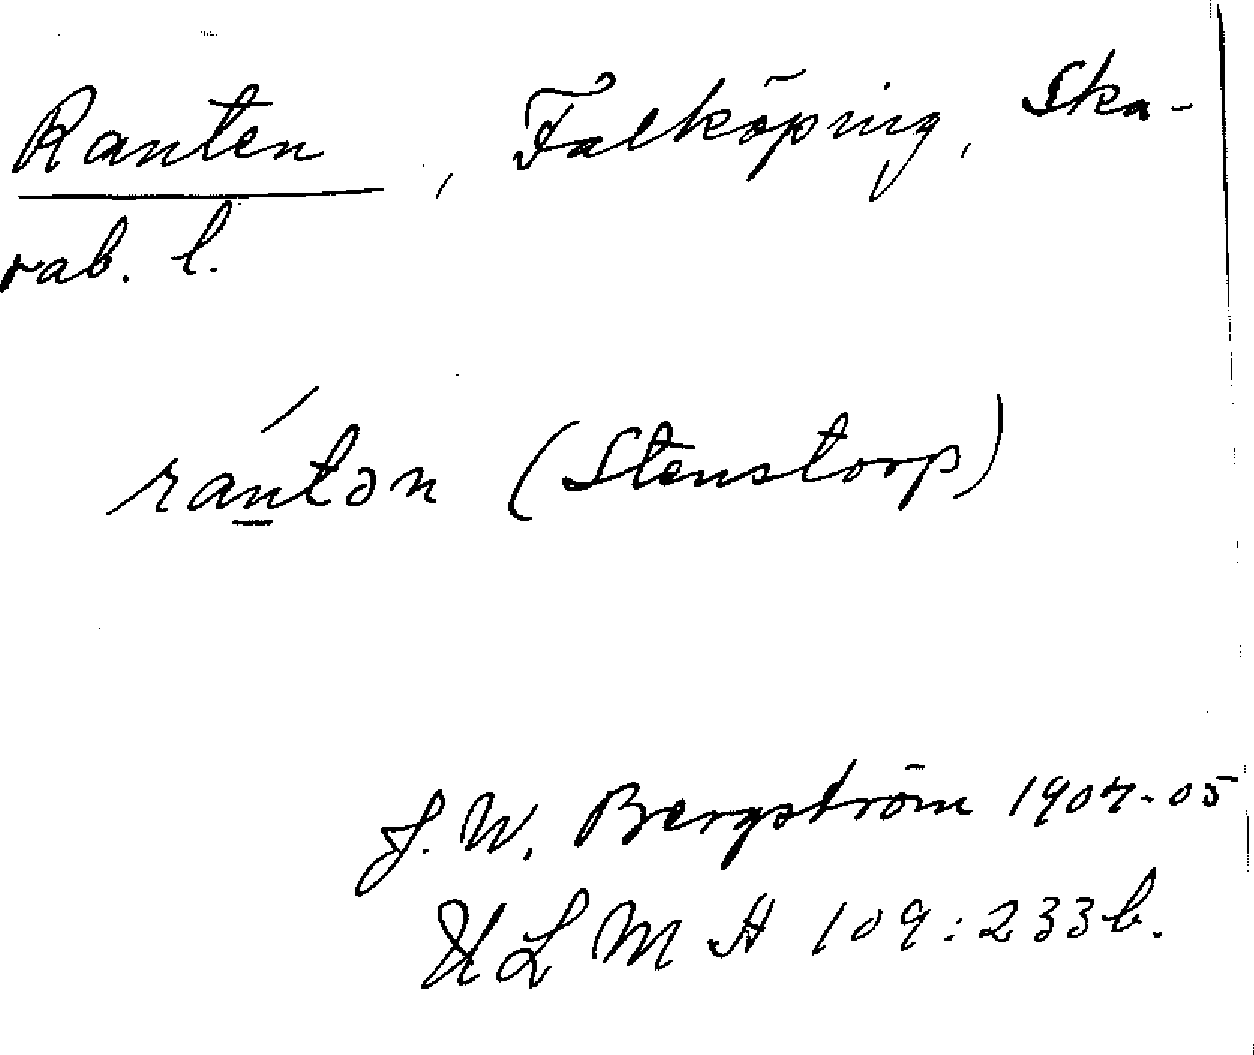 Ranten, Falköping, Ska-
rab. l.
rántən (Stenstorp)
J. W. Bergström 1904-05
ULMA 109:233b.